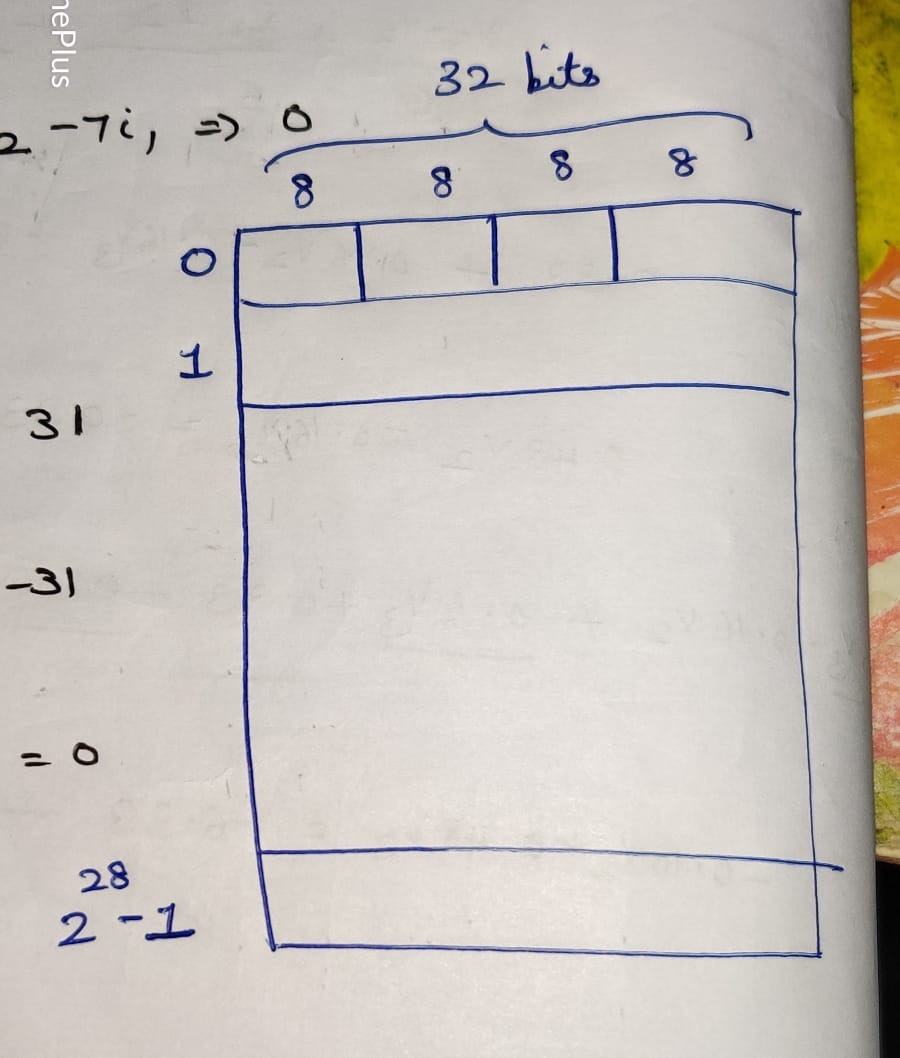 nePlus
32 bits
2 -7i, => 0
8 8 8 8
0
1
31
-31
= 0
28
2 -1